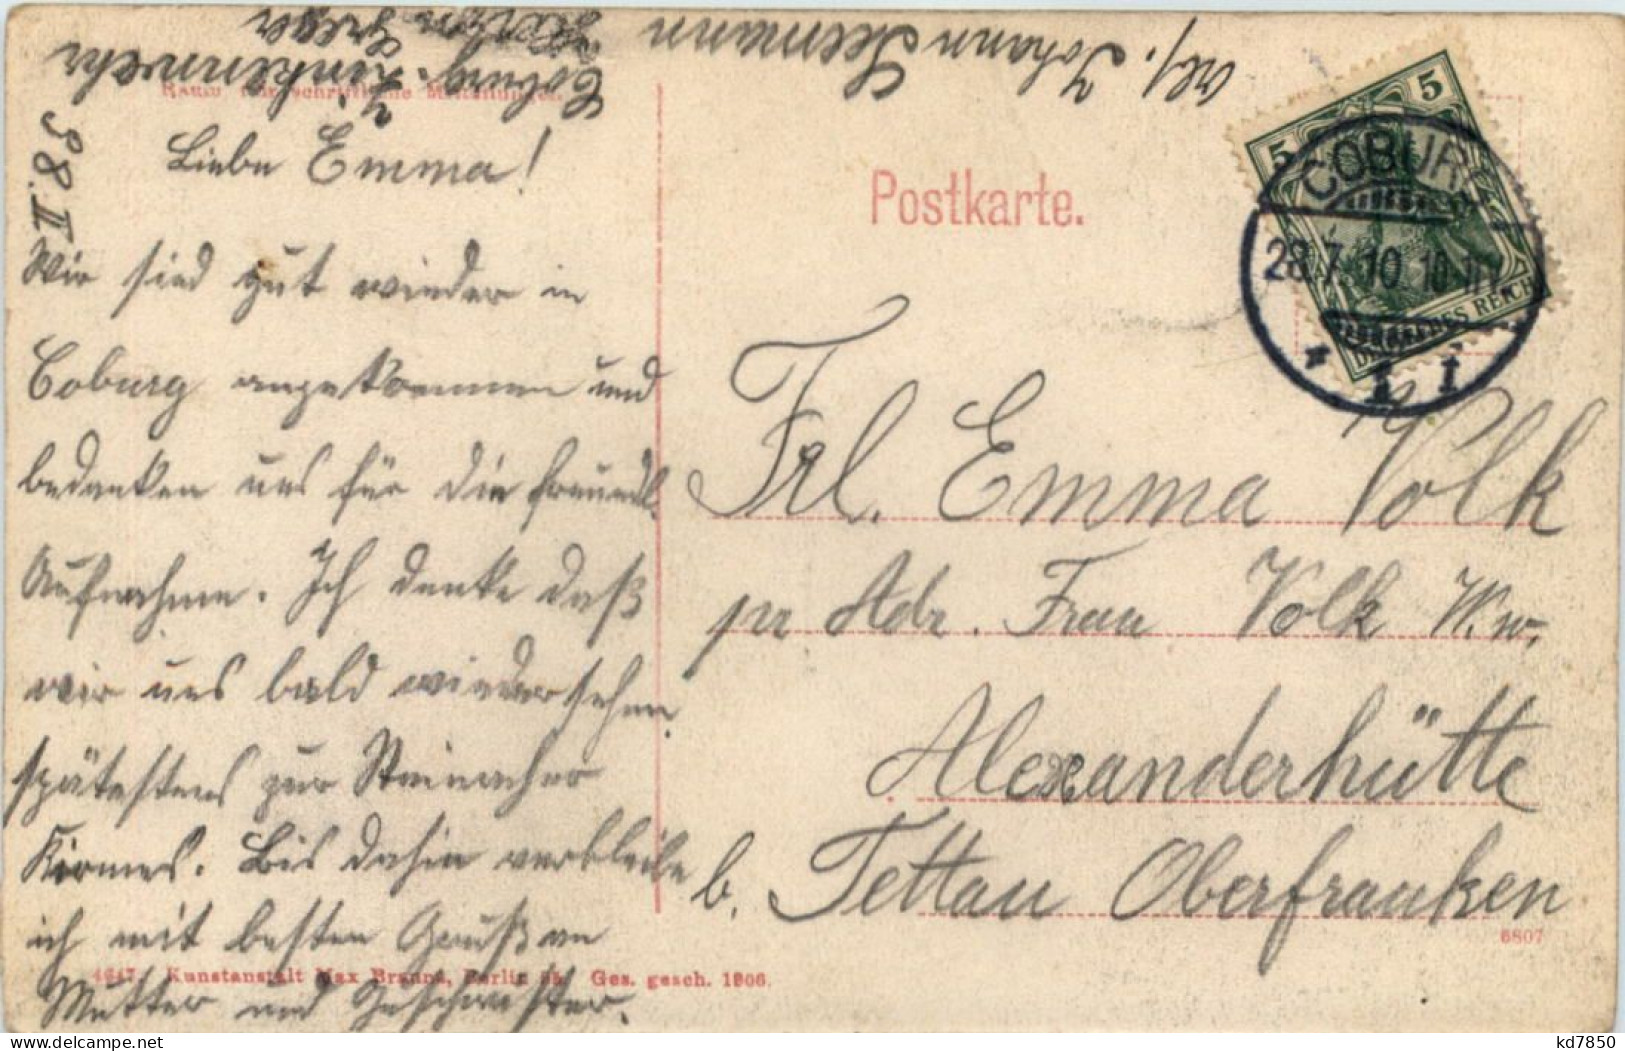 Liebe Emma!
Wir sind gut wieder in
Coburg angekommen und
bedanken uns für die freundl.
Aufnahme. Ich denke daß
wir uns bald wiedersehen
spätestens zur Steinacher
Kirmes. Bis dahin verbleibe
ich mit besten Grüßen
Mutter und Geschwister.
Johann Seemann
Coburg.
98 II
Postkarte.
5 5
DEUTSCHES REICH
COBURG
28.7.10.10-11V.
* 1 I
Frl. Emma Volk
pr Adr. Frau Volk Ww.
Alexanderhütte
b. Tettau Oberfranken
6807
Kunstanstalt Max Braune, Berlin Ges. gesch. 1906.
kd7850